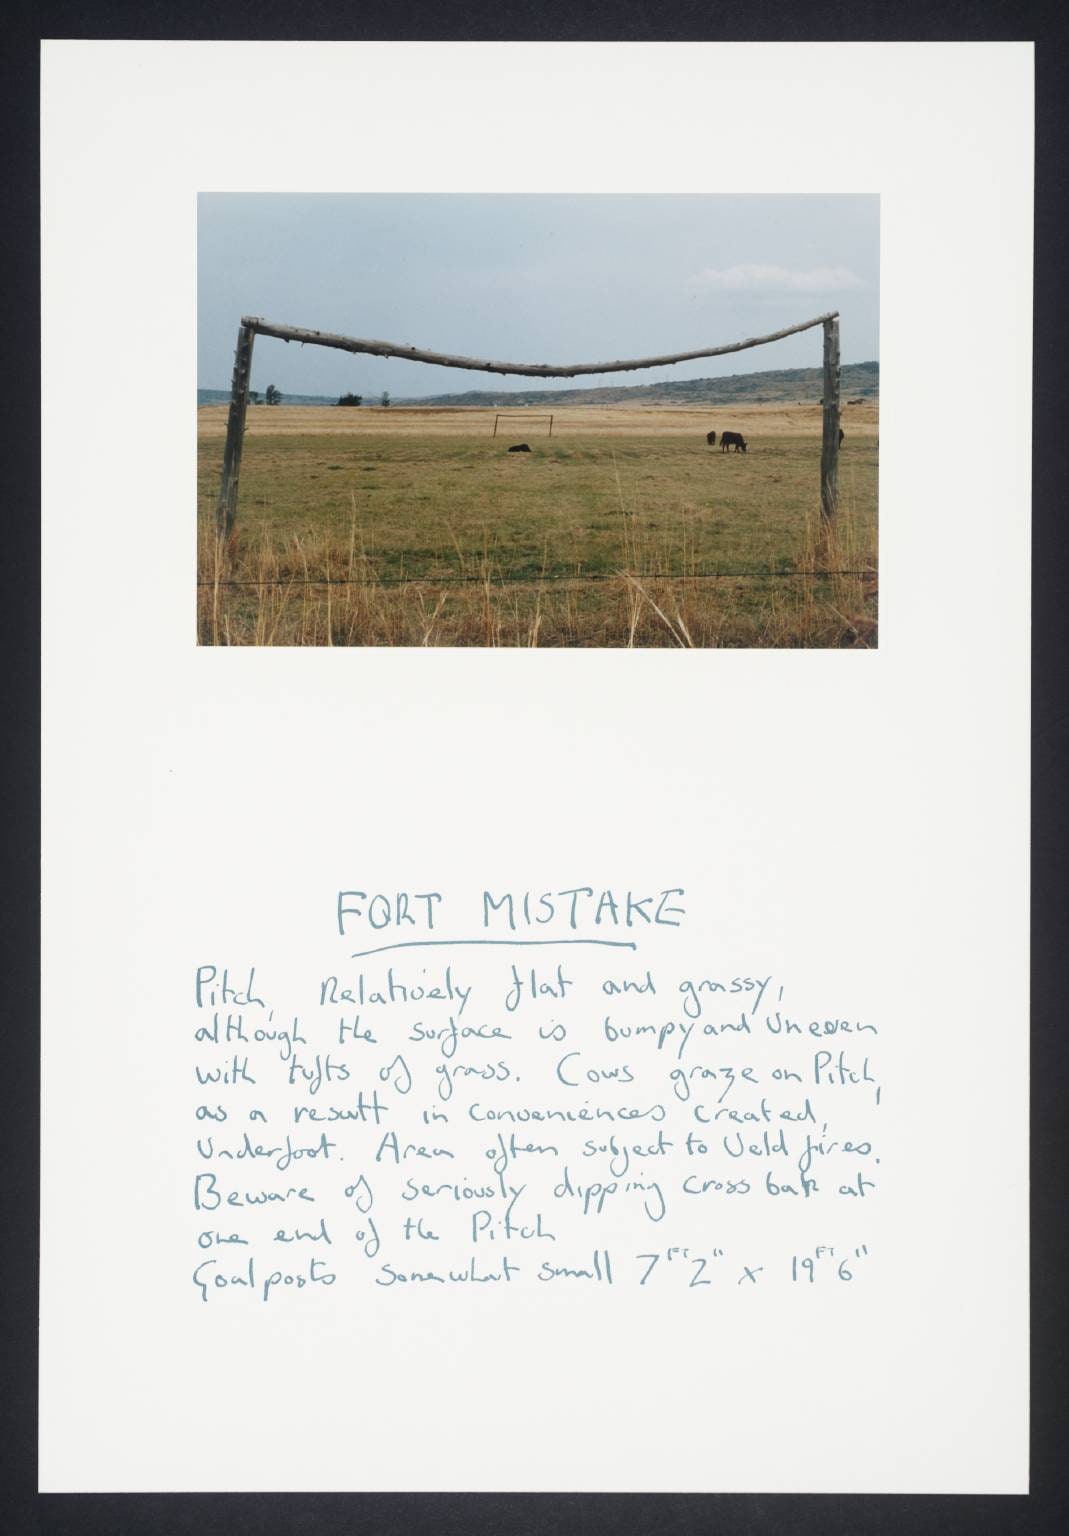 FORT MISTAKE
Pitch, Relatively flat and grassy,
although the surface is bumpy and Uneven
with tufts of grass. Cows graze on Pitch,
as a result inconveniences created,
Underfoot. Area often subject to Veld fires.
Beware of seriously dipping cross bar at
one end of the Pitch
Goalposts somewhat small 7FT2" x 19FT6"